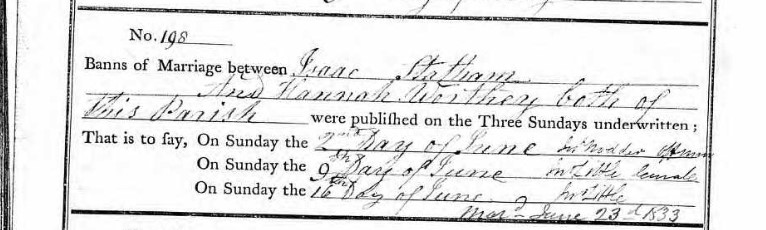 No. 198
Banns of Marriage between Isaac Statham
And Hannah Worthey both of
this Parish were publiſhed on the Three Sundays underwritten;
That is to ſay, On Sunday the 2nd Day of June
On Sunday the 9th Day of June Mr Little
On Sunday the 16th Day of June Mr Little
June 23d 1833